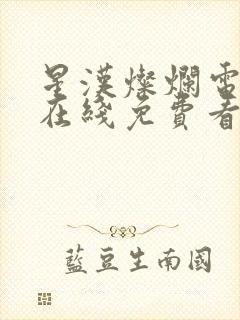 星漢燦爛電
在綫免費看
藍豆生南國